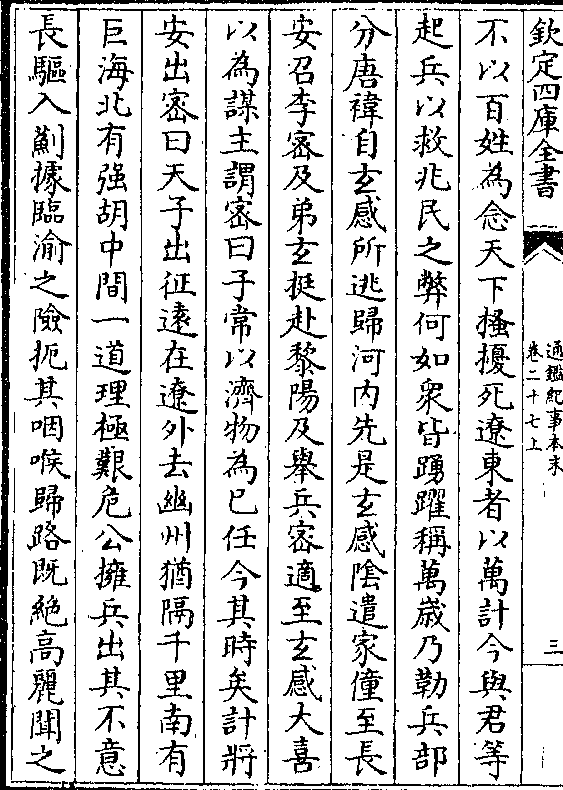 欽定四庫全書
通鑑紀事本末
卷二十七上
三
不以百姓為念天下搔擾死遼東者以萬計今與君等
起兵以救兆民之弊何如衆皆踴躍稱萬歲乃勒兵部
分唐禕自玄感所逃歸河內先是玄感陰遣家僮至長
安召李密及弟玄挺赴黎陽及舉兵密適至玄感大喜
以為謀主謂密曰子常以濟物為己任今其時矣計將
安出密曰天子出征遠在遼外去幽州猶隔千里南有
巨海北有强胡中間一道理極艱危公擁兵出其不意
長驅入薊據臨渝之險扼其咽喉歸路既絶高麗聞之